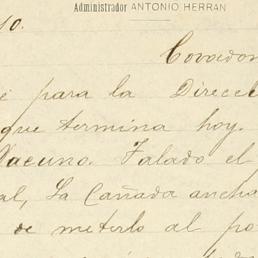 Administrador ANTONIO HERRAN
10.
Covadon
é para la Direcc
que termina hoy.
Vacuno. Falado el
al, La Cañada ancha
de meterlo al po